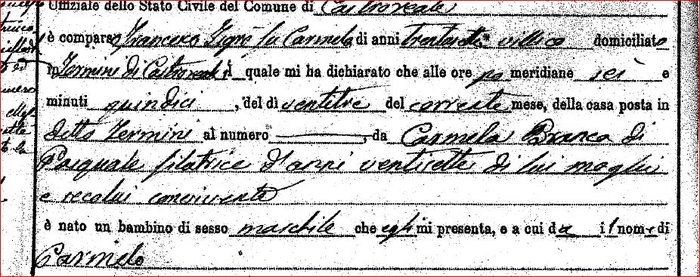 Uffiziale dello Stato Civile del Comune di Castroreale
è comparso Francesco Signò fu Carmelo di anni trentasette villico domiciliato
in Termini di Castroreale il quale mi ha dichiarato che alle ore po meridiane sei e
minuti quindici, del dì ventitre del corrente mese, della casa posta in
detto Termini al numero , da Carmela Branca di
Pasquale filatrice d'anni ventisette di lui moglie
e secolui convivente
è nato un bambino di sesso maschile che egli mi presenta, e a cui dà il nome di
Carmelo